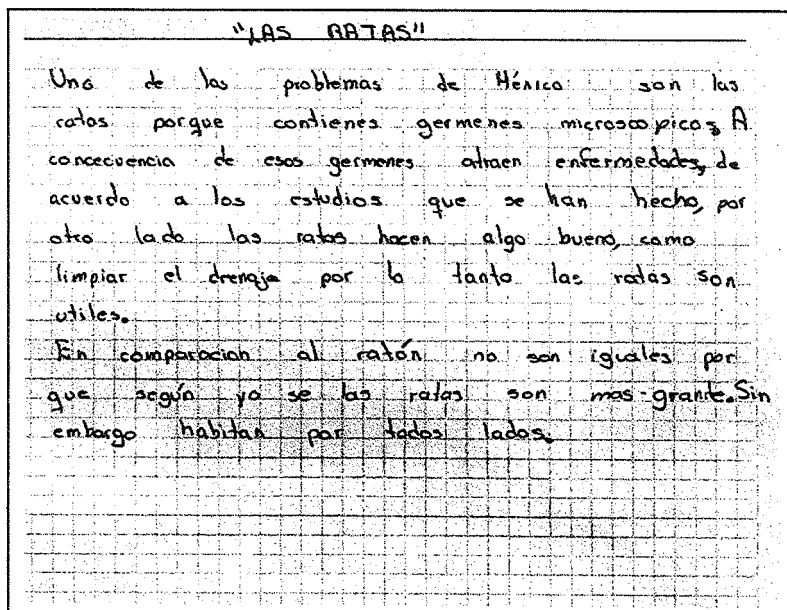 "LAS RATAS"
Uno de los problemas de México son las
ratas porque contienes germenes microscopicos, A
concecuencia de esos germenes atraen enfermedades, de
acuerdo a los estudios que se han hecho, por
otro lado las ratas hacen algo bueno, como
limpiar el drenaje por lo tanto las ratas son
utiles.
En comparacion al ratón no son iguales por
que según yo se las ratas son mas grante. Sin
embargo habitan por todos lados.